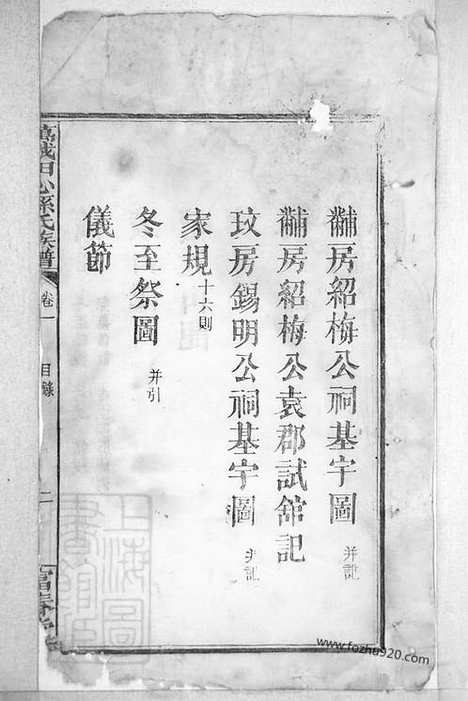 黼房紹梅公祠基宇圖 并記
黼房紹梅公袁郡試館記
玟房錫明公祠基宇圖 并記
家規 十六則
冬至祭圖 并引
儀節
萬載田心孫氏族譜 卷一 目錄 二 富春堂
上海圖書館藏
www.fozhu920.com